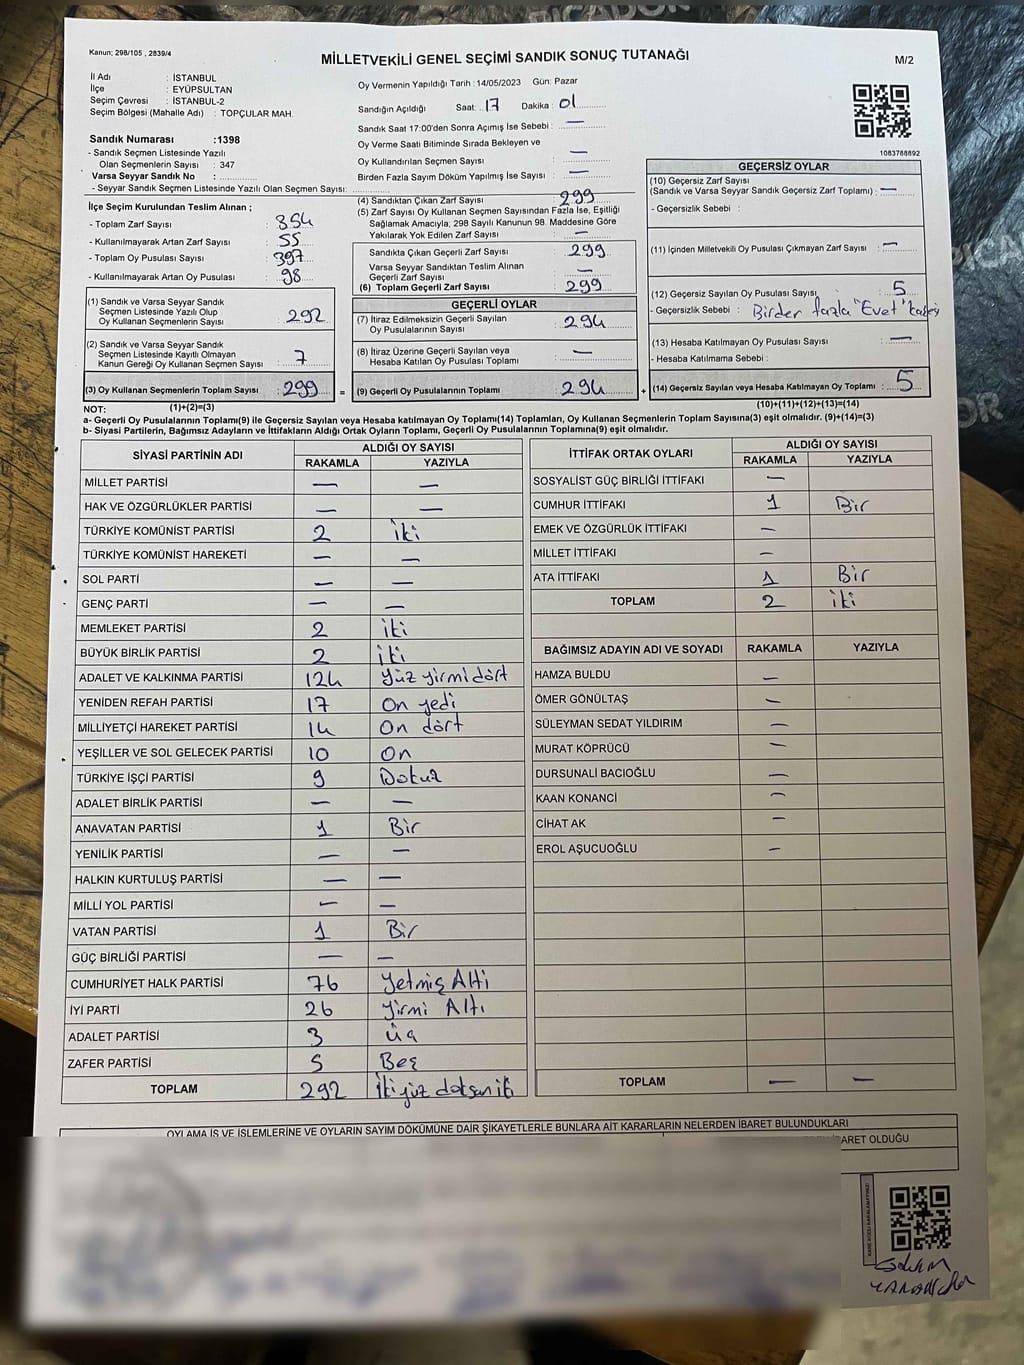 Kanun; 298/105 , 2839/4
MİLLETVEKİLİ GENEL SEÇİMİ SANDIK SONUÇ TUTANAĞI
M/2
İl Adı : İSTANBUL
İlçe : EYÜPSULTAN
Seçim Çevresi : İSTANBUL-2
Seçim Bölgesi (Mahalle Adı) : TOPÇULAR MAH.
Oy Vermenin Yapıldığı Tarih : 14/05/2023 Gün: Pazar
Sandığın Açıldığı Saat: 17 Dakika : 01
Sandık Saat 17:00'den Sonra Açımış İse Sebebi : —
Oy Verme Saati Bitiminde Sırada Bekleyen ve
Oy Kullandırılan Seçmen Sayısı : —
Birden Fazla Sayım Döküm Yapılmış İse Sayısı : —
1083788892
Sandık Numarası :1398
- Sandık Seçmen Listesinde Yazılı
Olan Seçmenlerin Sayısı : 347
Varsa Seyyar Sandık No :
- Seyyar Sandık Seçmen Listesinde Yazılı Olan Seçmen Sayısı:
İlçe Seçim Kurulundan Teslim Alınan ;
- Toplam Zarf Sayısı : 354
- Kullanılmayarak Artan Zarf Sayısı : 55
- Toplam Oy Pusulası Sayısı : 397
- Kullanılmayarak Artan Oy Pusulası : 98
(1) Sandık ve Varsa Seyyar Sandık
Seçmen Listesinde Yazılı Olup
Oy Kullanan Seçmenlerin Sayısı : 292
(2) Sandık ve Varsa Seyyar Sandık
Seçmen Listesinde Kayıtlı Olmayan
Kanun Gereği Oy Kullanan Seçmen Sayısı : 7
(3) Oy Kullanan Seçmenlerin Toplam Sayısı : 299
(4) Sandıktan Çıkan Zarf Sayısı : 299
(5) Zarf Sayısı Oy Kullanan Seçmen Sayısından Fazla İse, Eşitliği
Sağlamak Amacıyla, 298 Sayılı Kanunun 98. Maddesine Göre
Yakılarak Yok Edilen Zarf Sayısı : —
Sandıkta Çıkan Geçerli Zarf Sayısı : 299
Varsa Seyyar Sandıktan Teslim Alınan
Geçerli Zarf Sayısı : —
(6) Toplam Geçerli Zarf Sayısı : 299
GEÇERLİ OYLAR
(7) İtiraz Edilmeksizin Geçerli Sayılan
Oy Pusulalarının Sayısı : 294
(8) İtiraz Üzerine Geçerli Sayılan veya
Hesaba Katılan Oy Pusulası Toplamı : —
= (9) Geçerli Oy Pusulalarının Toplamı : 294
GEÇERSİZ OYLAR
(10) Geçersiz Zarf Sayısı
(Sandık ve Varsa Seyyar Sandık Geçersiz Zarf Toplamı) : —
- Geçersizlik Sebebi :
(11) İçinden Milletvekili Oy Pusulası Çıkmayan Zarf Sayısı : —
(12) Geçersiz Sayılan Oy Pusulası Sayısı : 5
- Geçersizlik Sebebi : Birder fazla "Evet" kaşesi
(13) Hesaba Katılmayan Oy Pusulası Sayısı : —
- Hesaba Katılmama Sebebi :
+ (14) Geçersiz Sayılan veya Hesaba Katılmayan Oy Toplamı : 5
NOT: (1)+(2)=(3)
(10)+(11)+(12)+(13)=(14)
a- Geçerli Oy Pusulalarının Toplamı(9) ile Geçersiz Sayılan veya Hesaba Katılmayan Oy Toplamı(14) Toplamları, Oy Kullanan Seçmenlerin Toplam Sayısına(3) eşit olmalıdır. (9)+(14)=(3)
b- Siyasi Partilerin, Bağımsız Adayların ve İttifakların Aldığı Ortak Oyların Toplamı, Geçerli Oy Pusulalarının Toplamına(9) eşit olmalıdır.
SİYASİ PARTİNİN ADI ALDIĞI OY SAYISI
RAKAMLA YAZIYLA
MİLLET PARTİSİ — —
HAK VE ÖZGÜRLÜKLER PARTİSİ — —
TÜRKİYE KOMÜNİST PARTİSİ 2 iki
TÜRKİYE KOMÜNİST HAREKETİ — —
SOL PARTİ — —
GENÇ PARTİ — —
MEMLEKET PARTİSİ 2 iki
BÜYÜK BİRLİK PARTİSİ 2 iki
ADALET VE KALKINMA PARTİSİ 124 yüz yirmi dört
YENİDEN REFAH PARTİSİ 17 On yedi
MİLLİYETÇİ HAREKET PARTİSİ 14 On dört
YEŞİLLER VE SOL GELECEK PARTİSİ 10 On
TÜRKİYE İŞÇİ PARTİSİ 9 Dokuz
ADALET BİRLİK PARTİSİ — —
ANAVATAN PARTİSİ 1 Bir
YENİLİK PARTİSİ — —
HALKIN KURTULUŞ PARTİSİ — —
MİLLİ YOL PARTİSİ — —
VATAN PARTİSİ 1 Bir
GÜÇ BİRLİĞİ PARTİSİ — —
CUMHURİYET HALK PARTİSİ 76 yetmiş Altı
İYİ PARTİ 26 yirmi Altı
ADALET PARTİSİ 3 üç
ZAFER PARTİSİ 5 Beş
TOPLAM 292 İkiyüz doksan iki
İTTİFAK ORTAK OYLARI ALDIĞI OY SAYISI
RAKAMLA YAZIYLA
SOSYALİST GÜÇ BİRLİĞİ İTTİFAKI —
CUMHUR İTTİFAKI 1 Bir
EMEK VE ÖZGÜRLÜK İTTİFAKI —
MİLLET İTTİFAKI —
ATA İTTİFAKI 1 Bir
TOPLAM 2 iki
BAĞIMSIZ ADAYIN ADI VE SOYADI RAKAMLA YAZIYLA
HAMZA BULDU —
ÖMER GÖNÜLTAŞ —
SÜLEYMAN SEDAT YILDIRIM —
MURAT KÖPRÜCÜ —
DURSUNALİ BACIOĞLU —
KAAN KONANCİ —
CİHAT AK —
EROL AŞUCUOĞLU —
TOPLAM — —
OYLAMA İŞ VE İŞLEMLERİNE VE OYLARIN SAYIM DÖKÜMÜNE DAİR ŞİKAYETLERLE BUNLARA AİT KARARLARIN NELERDEN İBARET BULUNDUKLARI
BARET OLDUĞU